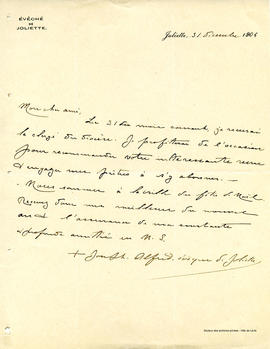 ÉVÊCHÉ
DE
JOLIETTE.
Joliette, 31 décembre 1906
Mon cher ami,
Le 31 du mois courant, je recevrai
le clergé du diocèse. Je profiterai de l'occasion
pour recommander votre intéressante revue
& engager mes prêtres à s'y abonner.
Nous sommes à la veille des fêtes de Noël
Recevez donc mes meilleurs du nouvel
an & l'assurance de ma constante
& profonde amitié en N. S.
+ Joseph Alfred, évêque de Joliette